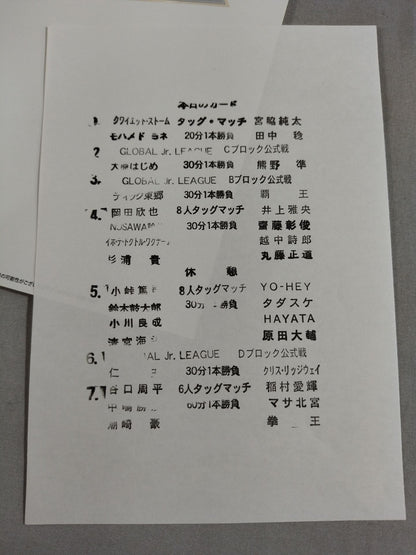 本日のカード
1. クワイエット・ストーム タッグ・マッチ 宮脇純太
モハメド ヨネ 20分1本勝負 田中 稔
2 GLOBAL Jr. LEAGUE Cブロック公式戦
大原はじめ 30分1本勝負 熊野 準
3. GLOBAL Jr. LEAGUE Bブロック公式戦
ディック東郷 30分1本勝負 覇 王
4. 岡田欣也 8人タッグマッチ 井上雅央
NOSAWA 30分1本勝負 齋藤彰俊
越中詩郎
杉浦 貴 丸藤正道
休 憩
5. 小峠篤 8人タッグマッチ YO-HEY
鈴木鼓太郎 30分1本勝負 タダスケ
小川良成 HAYATA
清宮海 原田大輔
6. BAL Jr. LEAGUE Dブロック公式戦
仁 30分1本勝負 クリス・リッジウェイ
7. 谷口周平 6人タッグマッチ 稲村愛輝
中嶋勝 60分1本勝負 マサ北宮
潮崎 豪 拳 王